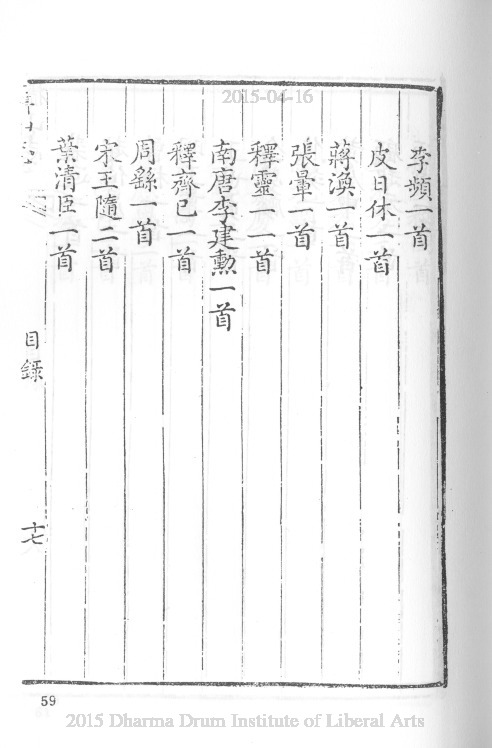 2015-04-16
李頻一首
皮日休一首
蔣渙一首
張暈一首
釋靈一一首
南唐李建勲一首
釋齊已一首
周繇一首
宋王隨二首
葉清臣一首
目錄
十七
59
2015 Dharma Drum Institute of Liberal Arts